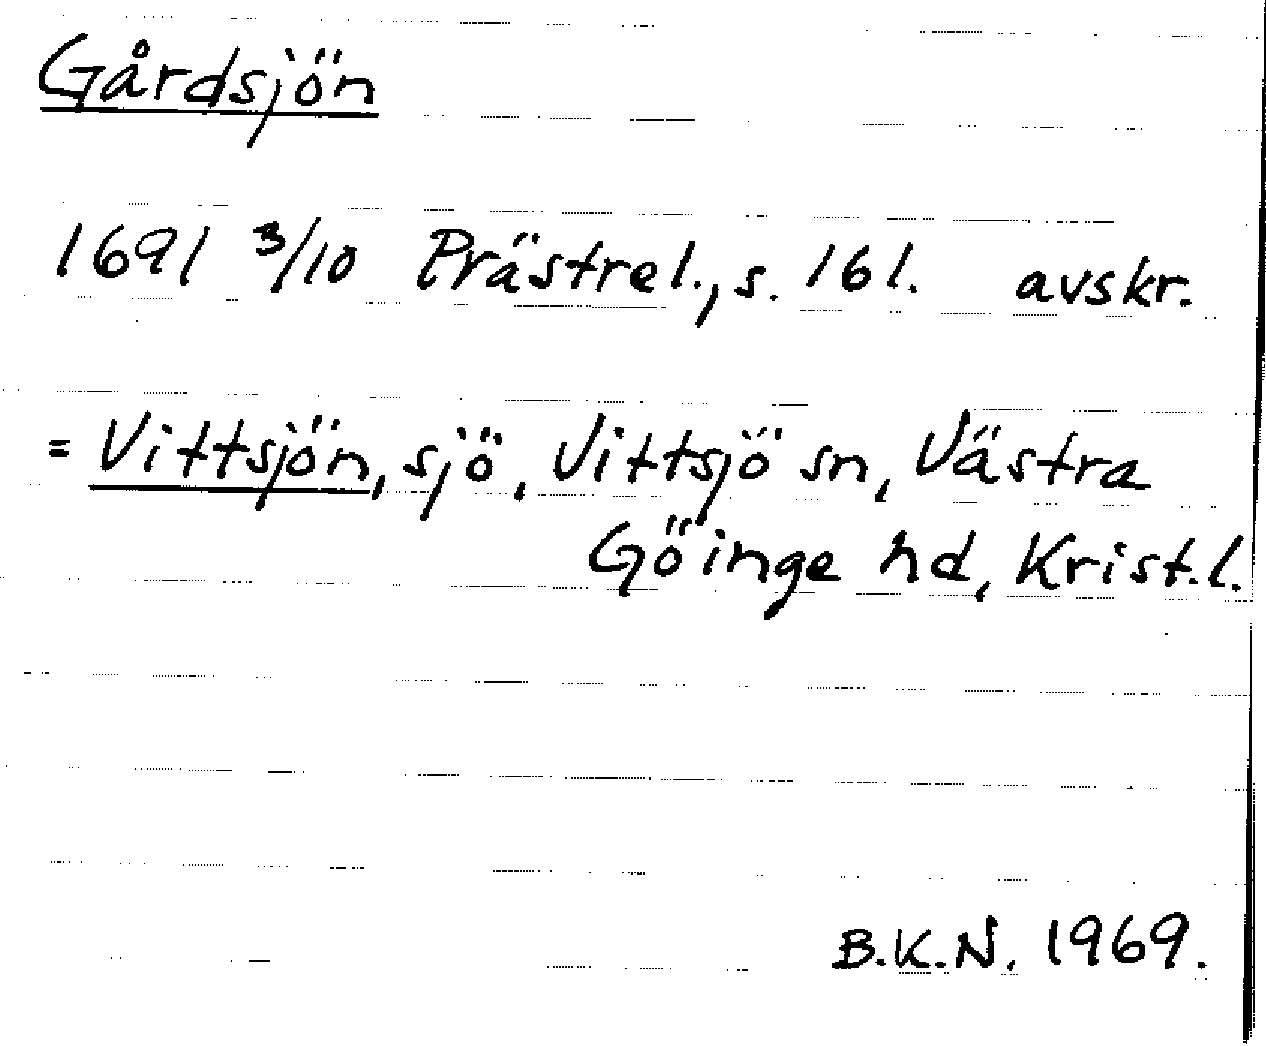 Gårdsjön
1691 3/10 Prästrel., s. 161. avskr.
= Vittsjön, sjö, Vittsjö sn, Västra
Göinge hd, Krist.l.
B.K.N. 1969.